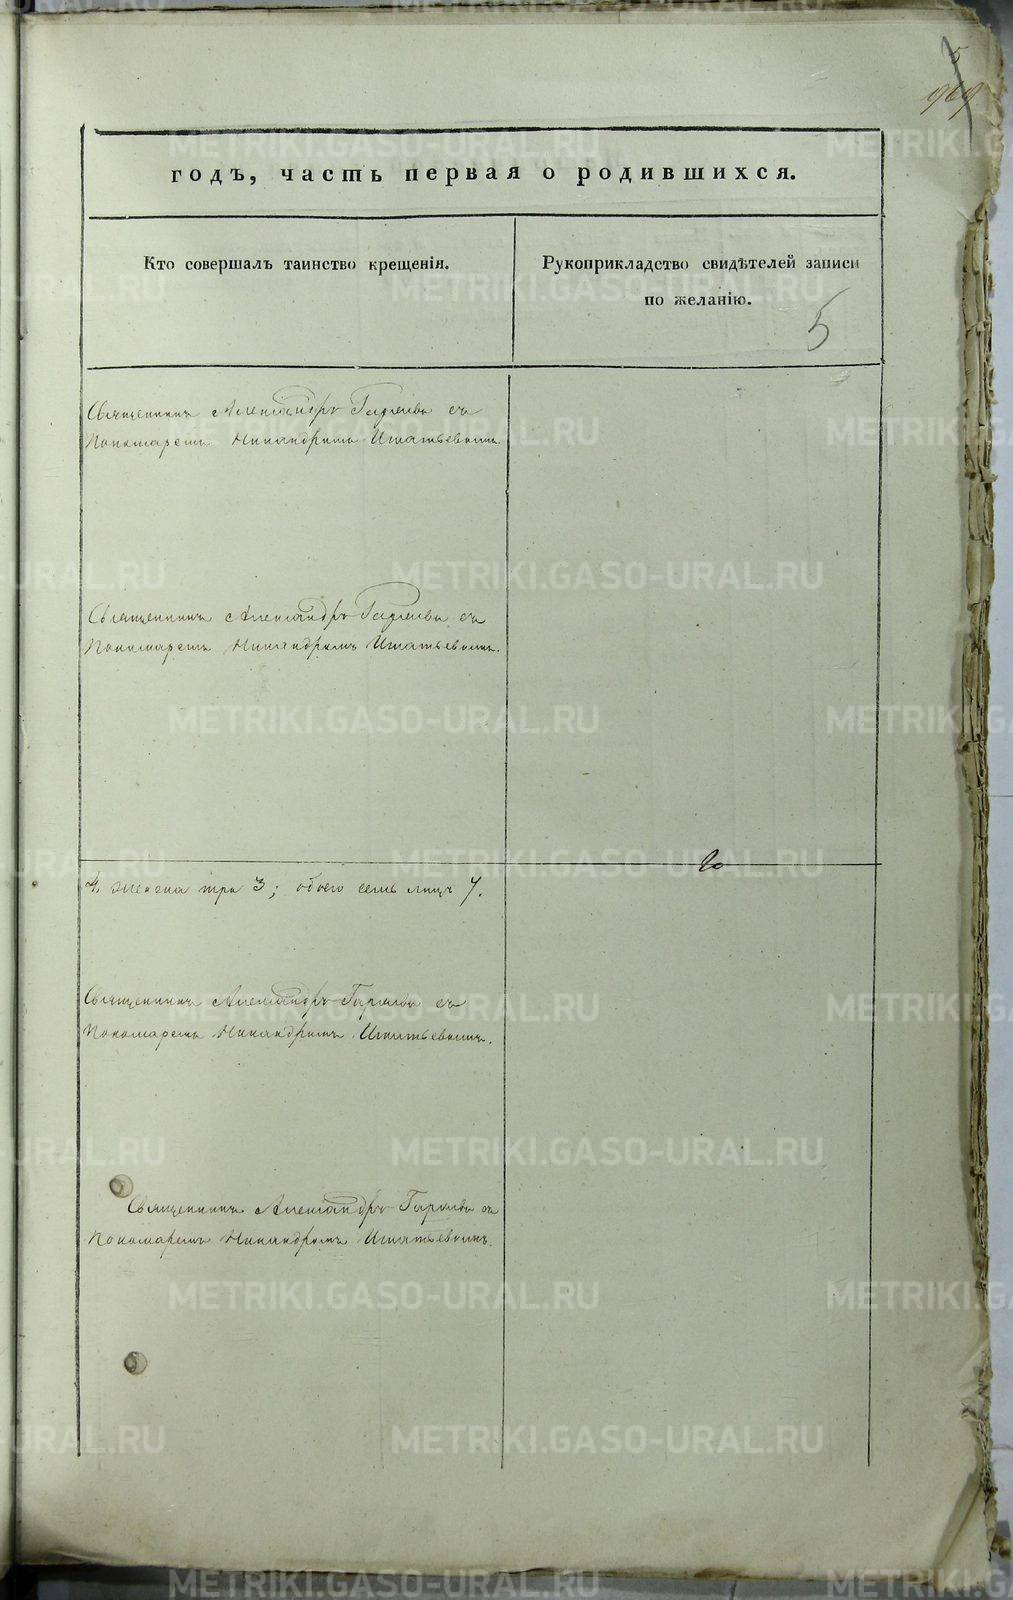 5
969
годъ, часть первая о родившихся.
Кто совершалъ таинство крещенія.
Рукоприкладство свидѣтелей записи
по желанію.
5
Священникъ Александръ съ
Пономаремъ Никандромъ Игнатьевымъ.
Священникъ Александръ съ
Пономаремъ Никандромъ Игнатьевымъ.
4, женска три 3; обоего семь лицъ 7.
Священникъ Александръ съ
Пономаремъ Никандромъ Игнатьевымъ.
Священникъ Александръ съ
Пономаремъ Никандромъ Игнатьевымъ.
METRIKI.GASO-URAL.RU